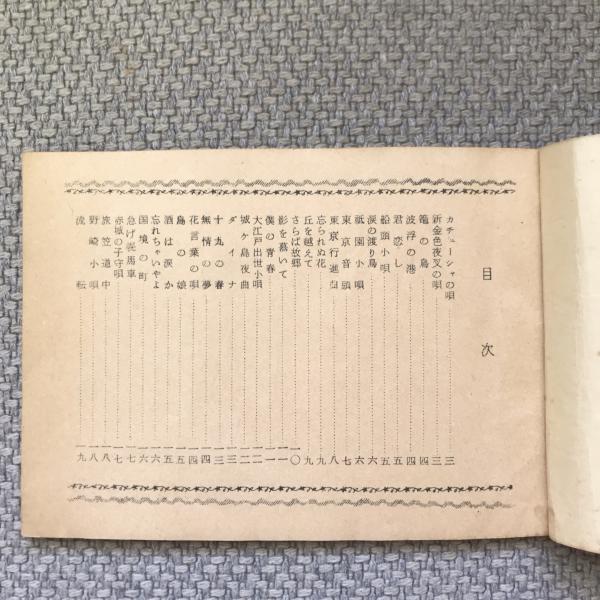 目次
カチューシャの唄……三
新金色夜叉の唄……三
籠の鳥……四
波浮の港……四
君恋し……五
船頭小唄……五
涙の渡り鳥……六
祇園小唄……六
東京音頭……七
東京行進曲……八
忘られぬ花……九
丘を越えて……九
さらば故郷……一〇
影を慕いて……一一
僕の青春……一一
大江戸出世小唄……一二
城ヶ島夜曲……一二
ダイナ……一三
十九の春……一三
無情の夢……一四
花言葉の唄……一四
島の娘……一五
酒は涙か……一五
忘れちゃいやよ……一六
国境の町……一六
急げ幌馬車……一七
赤城の子守唄……一七
旅笠道中……一八
野崎小唄……一八
流転……一九